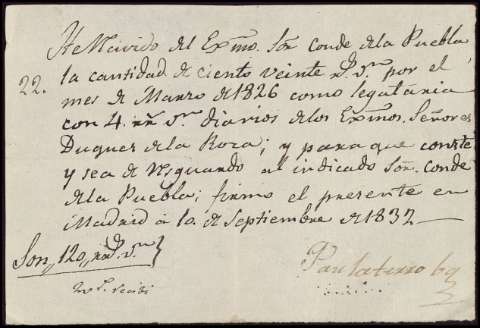 He recivido del Exmo. Sor. Conde de la Puebla
22. la cantidad de ciento veinte rs. vn. por el
mes de Marzo de 1826 como legataria
con 4 rs. vn. diarios de los Exmos. Señores
Duques de la Roca; y para que conste
y sea de resguardo al indicado Sor. Conde
de la Puebla; firmo el presente en
Madrid a 10 de Septiembre de 1832
Son, 120,, rs. vn.